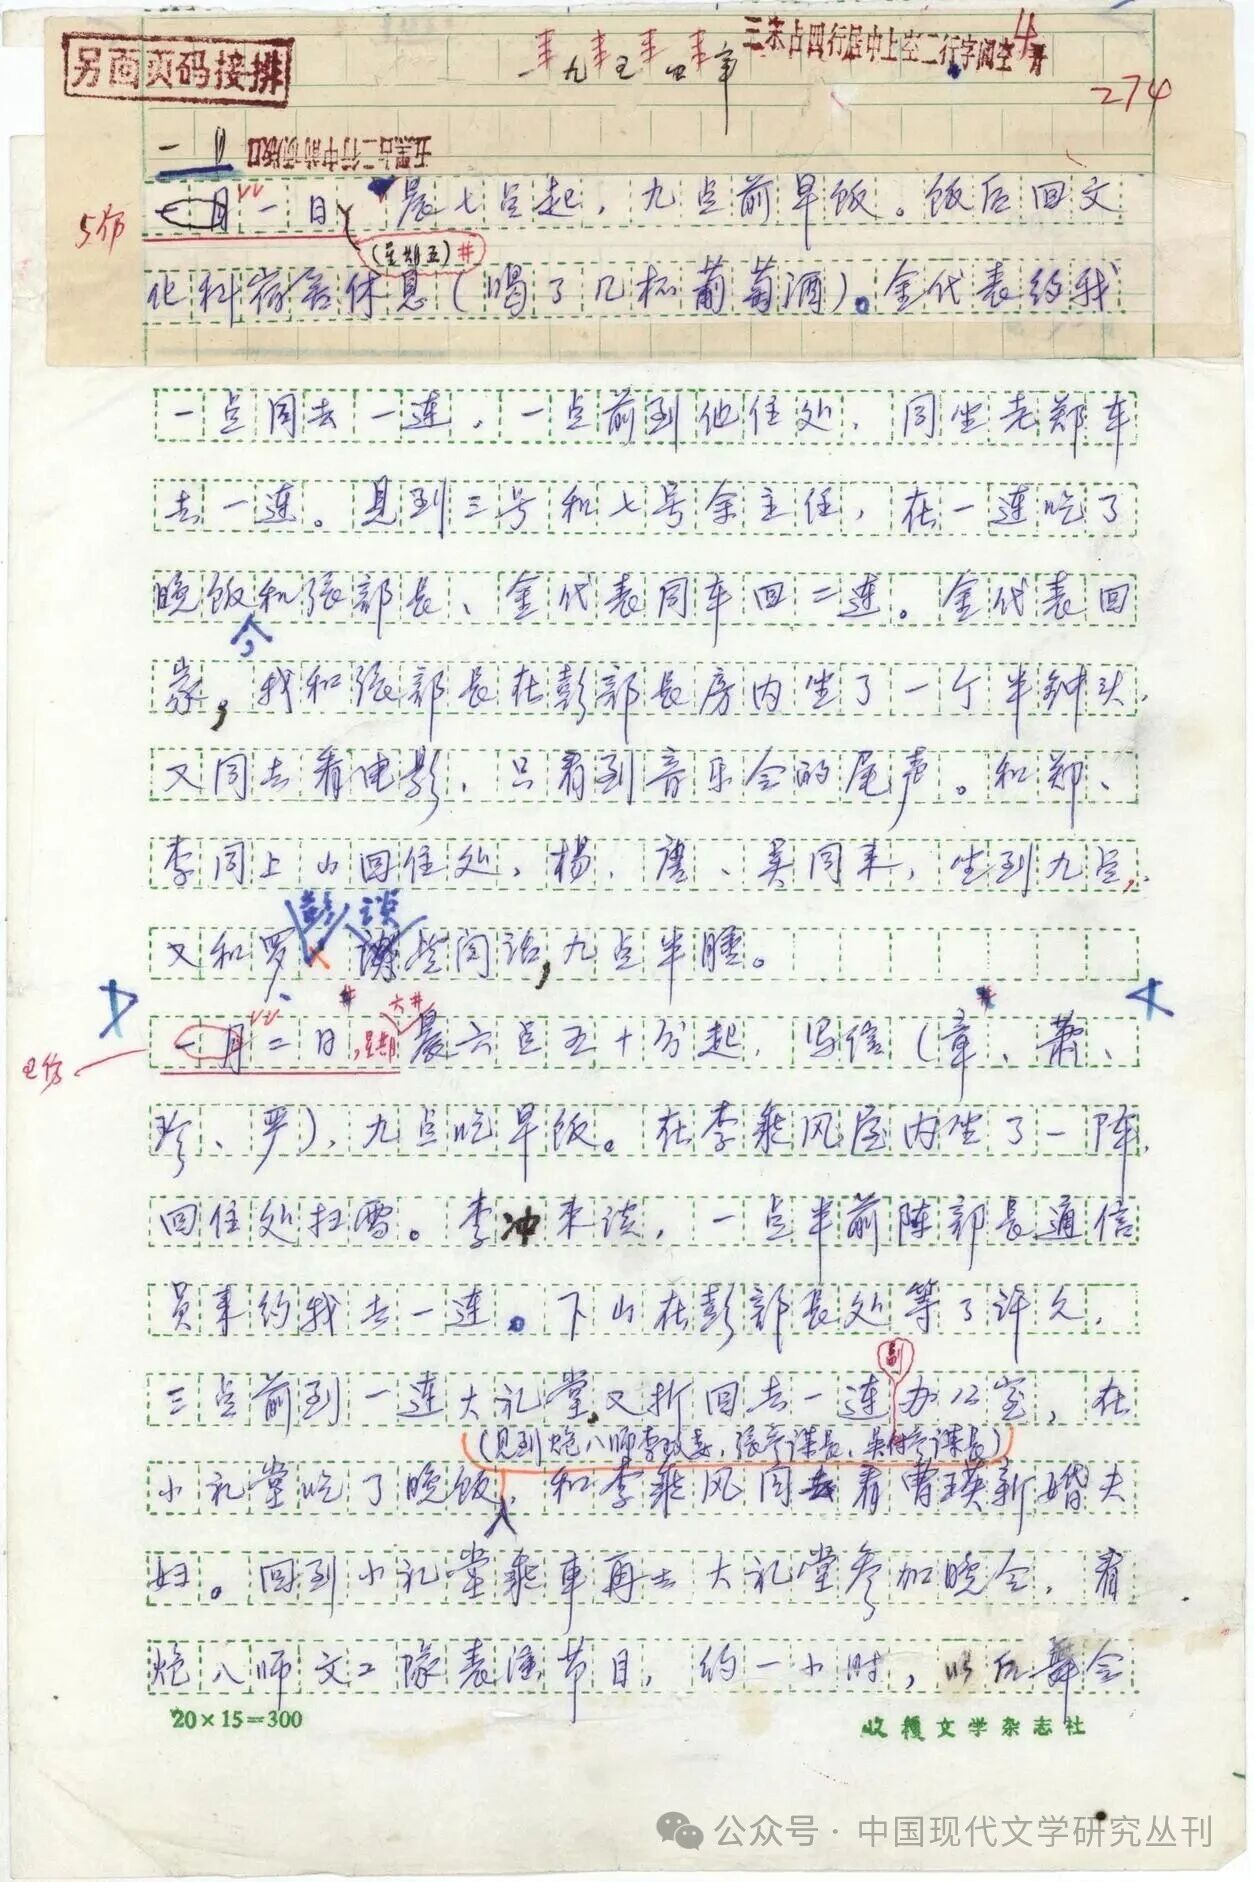 另面页码接排
一九五四年
三宋占四行居中上空二行字间空4
274
一月
五黑占二行中前
5仿
一月一日 晨七点起，九点前早饭。饭后回文
(星期五)
化科宿舍休息(喝了几杯葡萄酒)。金代表约我
一点同去一连，一点前到他住处，同坐老郑车
去一连。见到三号和七号余主任，在一连吃了
晚饭和张部长、金代表同车回二连。金代表回
家，我和张部长在彭部长房内坐了一个半钟头，
又同去看电影，只看到音乐会的尾声。和郑、
李同上山回住处，杨、唐、吴同来，坐到九点，
彭 谈
又和罗、些闲话，九点半睡。
一月二日，星期六 晨六点五十分起，写信(章、萧、
珍、严)，九点吃早饭。在李乘风屋内坐了一阵，
回住处扫雪。李冲来谈，一点半前陈部长通信
员来约我去一连。下山在彭部长处等了许久，
副
三点前到一连大礼堂，又折回去一连办公室，在
(见到炮八师李政委，张参谋长，吴付参谋长)
小礼堂吃了晚饭，和李乘风同去看曹瑛新婚夫
妇。回到小礼堂乘车再去大礼堂参加晚会，看
炮八师文工队表演节目，约一小时，以后舞会
20×15=300
收穫文学杂志社
公众号·中国现代文学研究丛刊